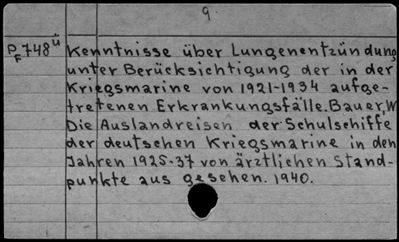 9
P/F 748ü Kenntnisse über Lungenentzündung
unter Berücksichtigung der in der
Kriegsmarine von 1921-1934 aufge-
tretenen Erkrankungsfälle. Bauer, W
Die Auslandreisen der Schulschiffe
der deutschen Kriegsmarine in den
Jahren 1925-37 von ärztlichen Stand-
punkte aus gesehen. 1940.